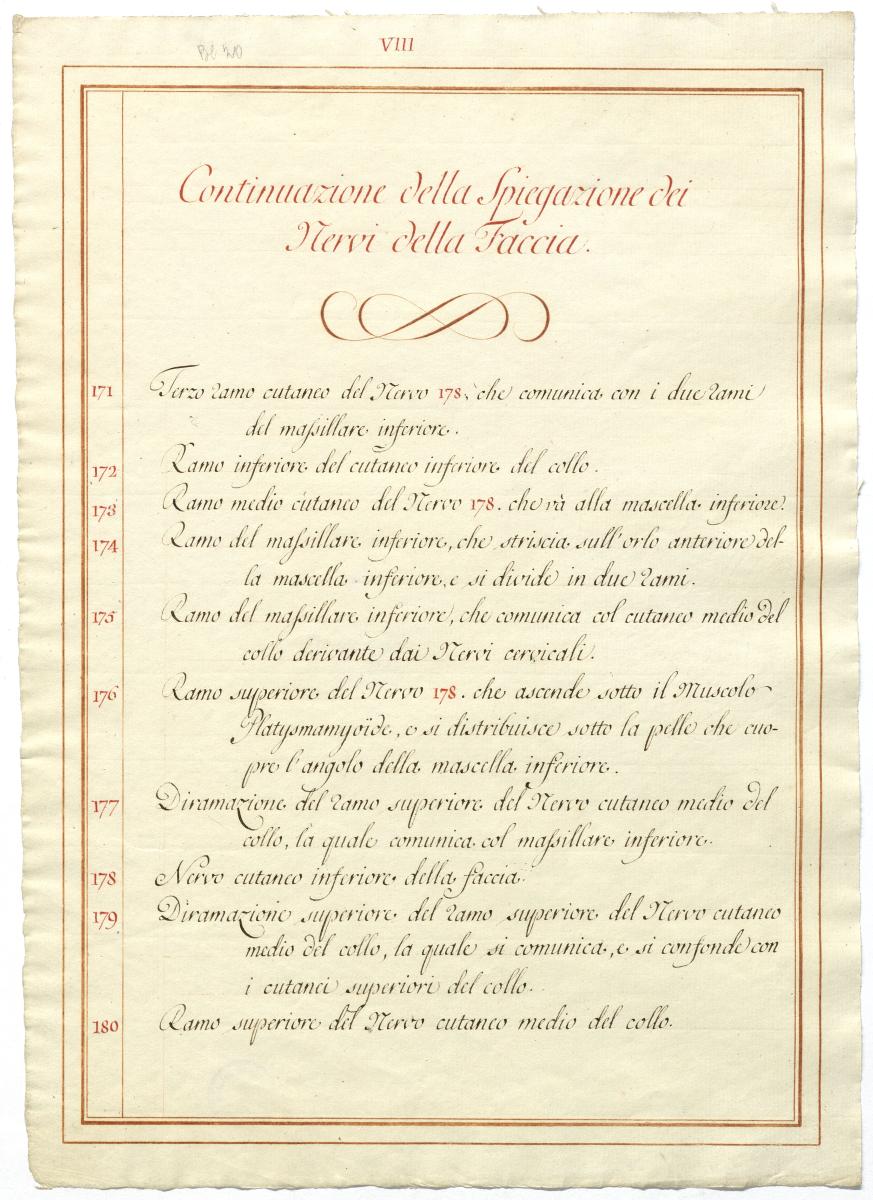 VIII
Continuazione della Spiegazione dei
Nervi della Faccia.
171 Terzo ramo cutaneo del Nervo 178, che comunica con i due rami
del maſsillare inferiore.
172 Ramo inferiore del cutaneo inferiore del collo.
173 Ramo medio cutaneo del Nervo 178. che và alla mascella inferiore.
174 Ramo del maſsillare inferiore, che striscia sull'orlo anteriore del-
la mascella inferiore, e si divide in due rami.
175 Ramo del maſsillare inferiore, che comunica col cutaneo medio del
collo derivante dai Nervi cervicali.
176 Ramo superiore del Nervo 178. che ascende sotto il Muscolo
Platysmamyoïde, e si distribuisce sotto la pelle che cuo-
pre l'angolo della mascella inferiore.
177 Diramazione del ramo superiore del Nervo cutaneo medio del
collo, la quale comunica col maſsillare inferiore.
178 Nervo cutaneo inferiore della faccia.
179 Diramazione superiore del ramo superiore del Nervo cutaneo
medio del collo, la quale si comunica, e si confonde con
i cutanei superiori del collo.
180 Ramo superiore del Nervo cutaneo medio del collo.